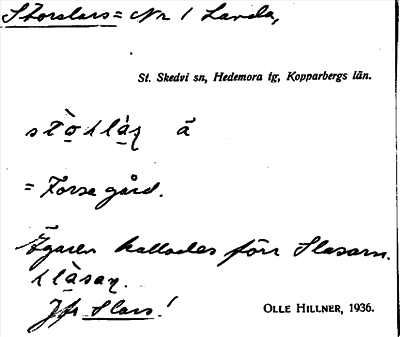 Storslars = Nr 1 Landa,
St. Skedvi sn, Hedemora tg, Kopparbergs län.
å
= Forsa gård.
Ägaren kallades förr Slasarn.
Jfr Slars!
OLLE HILLNER, 1936.